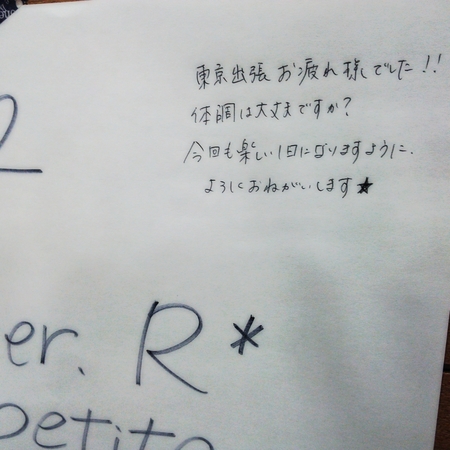 東京出張 お疲れ様でした!!
体調は大丈夫ですか?
今回も楽しい1日になりますように.
よろしくおねがいします★
2
er. R *
petit